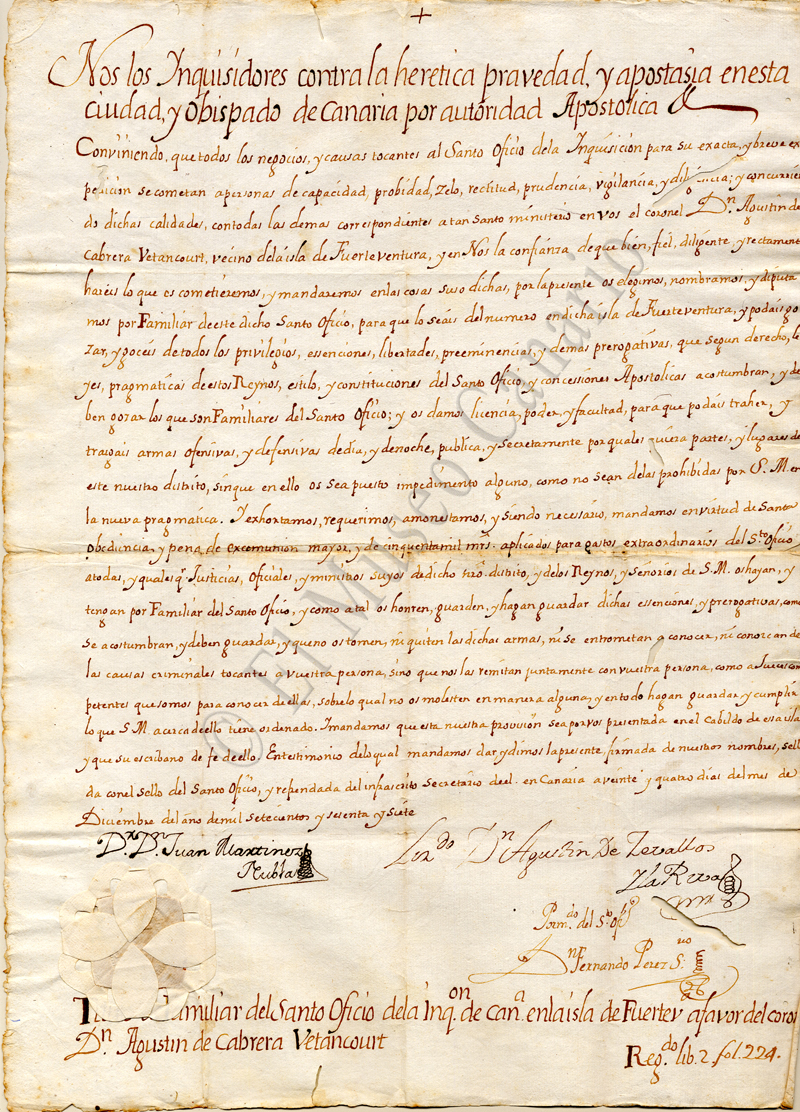 +
Nos los Inquisidores contra la heretica pravedad, y apostasia en esta
ciudad, y Obispado de Canaria por autoridad Apostolica &
Conviniendo, que todos los negocios, y causas tocantes al Santo Oficio dela Inquisicion para su exacta, y breve ex
pedicion se cometan a personas de capacidad, probidad, zelo, rectitud, prudencia, vigilancia, y diligencia; y concurrien
do dichas calidades, con todas las demas correspondientes a tan Santo ministerio en vos el coronel Dn. Agustin de
Cabrera Vetancourt, vecino dela isla de Fuerteventura, y en Nos la confianza de que bien, fiel, diligente, y rectamente
hareis lo que os cometieremos, y mandaremos en las cosas suso dichas, por la presente os elegimos, nombramos, y diputa
mos por Familiar de este dicho Santo Oficio, para que lo seais del numero en dicha isla de Fuerteventura, y podais go
zar, y goceis de todos los privilegios, essenciones, libertades, preeminencias, y demas prerogativas, que segun derecho, le
yes, pragmaticas de estos Reynos, estilo, y constituciones del Santo Oficio, y concessiones Apostolicas acostumbran, y de
ben gozar los que son Familiares del Santo Oficio; y os damos licencia, poder, y facultad, para que podais traher, y
traigais armas ofensivas, y defensivas de dia, y de noche, publica, y secretamente por quales quiera partes, y lugares de
este nuestro distrito, sin que en ello os sea puesto impedimento alguno, como no sean delas prohibidas por S. M. en
la nueva pragmatica. Y exhortamos, requerimos, amonestamos, y siendo necessario, mandamos en virtud de Santa
obediencia, y pena de excomunion mayor, y de cinquenta mil mrs. aplicados para gastos extraordinarios del Sto. Oficio
a todas, y quales qr. Justicias, Oficiales, y ministros suyos de dicho nro. distrito, y delos Reynos, y Señorios de S. M. os hayan, y
tengan por Familiar del Santo Oficio, y como a tal os honren, guarden, y hagan guardar dichas essenciones, y prerogativas, como
se acostumbran, y deben guardar, y que no os tomen, ni quiten las dichas armas, ni se entrometan a conocer, ni conozcan de
las causas criminales tocantes a vuestra persona, sino que nos las remitan juntamente con vuestra persona, como a Jueces com
petentes que somos para conocer de ellas, sobre lo qual no os molesten en manera alguna, y en todo hagan guardar, y cumplir
lo que S. M. acerca de ello tiene ordenado. I mandamos que esta nuestra provision sea por vos presentada en el Cabildo de esa isla
y que su escribano de fe de ello. En testimonio delo qual mandamos dar, y dimos la presente, firmada de nuestros nombres, sella
da con el sello del Santo Oficio, y refrendada del infrascrito Secretario de el. en Canaria a veinte y quatro dias del mes de
Diciembre del año de mil setecientos y sesenta y siete
Dr. Dn. Juan Martinez
Nubla
Lizdo Dn Agustin De Zevallos
Y la Riva
Por mdo. del Sto. Ofio
Dn Fernando Perez Srio
Familiar del Santo Oficio dela Inqon. de Cana. en la isla de Fuertev a favor del coronl
Dn. Agustin de Cabrera Vetancourt
Regdo. lib. 2. fol. 224.
© El Museo Canario